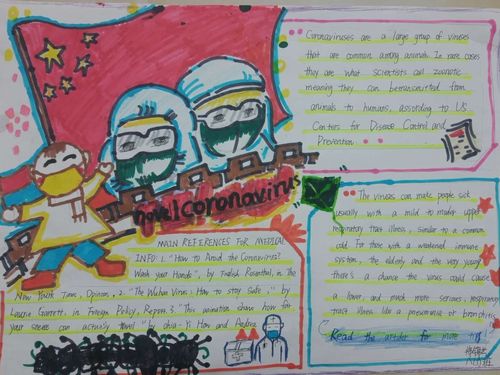 Coronaviruses are a large group of viruses
that are common among animals. In rare cases
they are what scientists call zoonotic
meaning they can betransmitted from
animals to humans, according to US
Centers for Disease Control and
Prevention
novel coronavirus
The viruses can make people sick
usually with a mild to upper
respiratory tract illness, similar to a common
cold. For those with a weakened immune
system, the elderly and the very young,
there's a chance the virus could cause
a lower, and much more serious, respiratory
tract illness like a pneumonia or bronchitis
Read the for more
MAIN REFERENCES FOR MEDICAL
INFO: 1. "How to Avoid the Coronavirus?
Wash your Hands", by Rosenthal, in The
New York Times, Opinion, 2. "The Wuhan Virus: How to stay Safe," by
Laurie Garrett, in Foreign Policy, Report 3. This animation show how far
your sneeze can actually travel" by Yi Han and